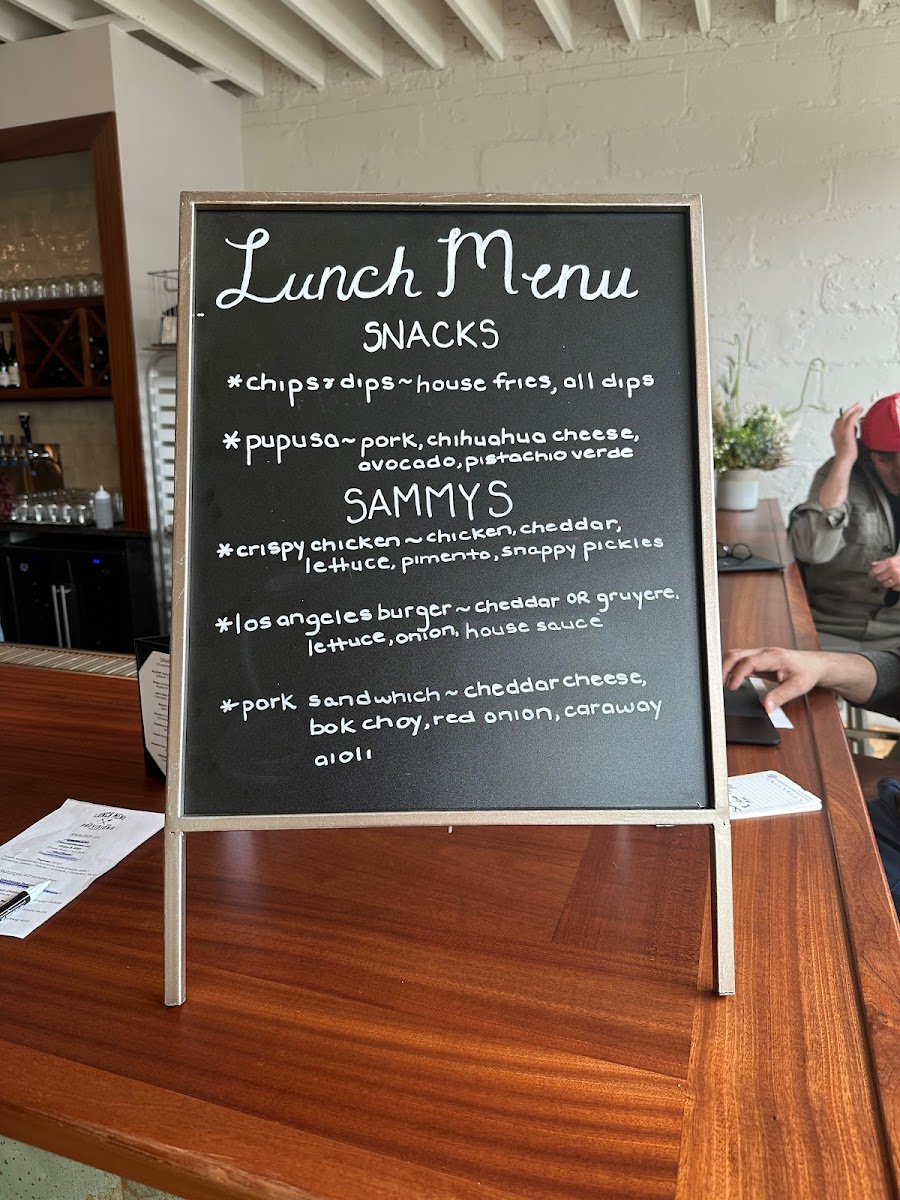 Lunch Menu
SNACKS
*chips & dips ~ house fries, all dips
*pupusa ~ pork, chihuahua cheese,
avocado, pistachio verde
SAMMYS
*crispy chicken ~ chicken, cheddar,
lettuce, pimento, snappy pickles
*los angeles burger ~ cheddar OR gruyere.
lettuce, onion, house sauce
*pork sandwhich ~ cheddar cheese,
bok choy, red onion, caraway
aioli
LUNCH MENU